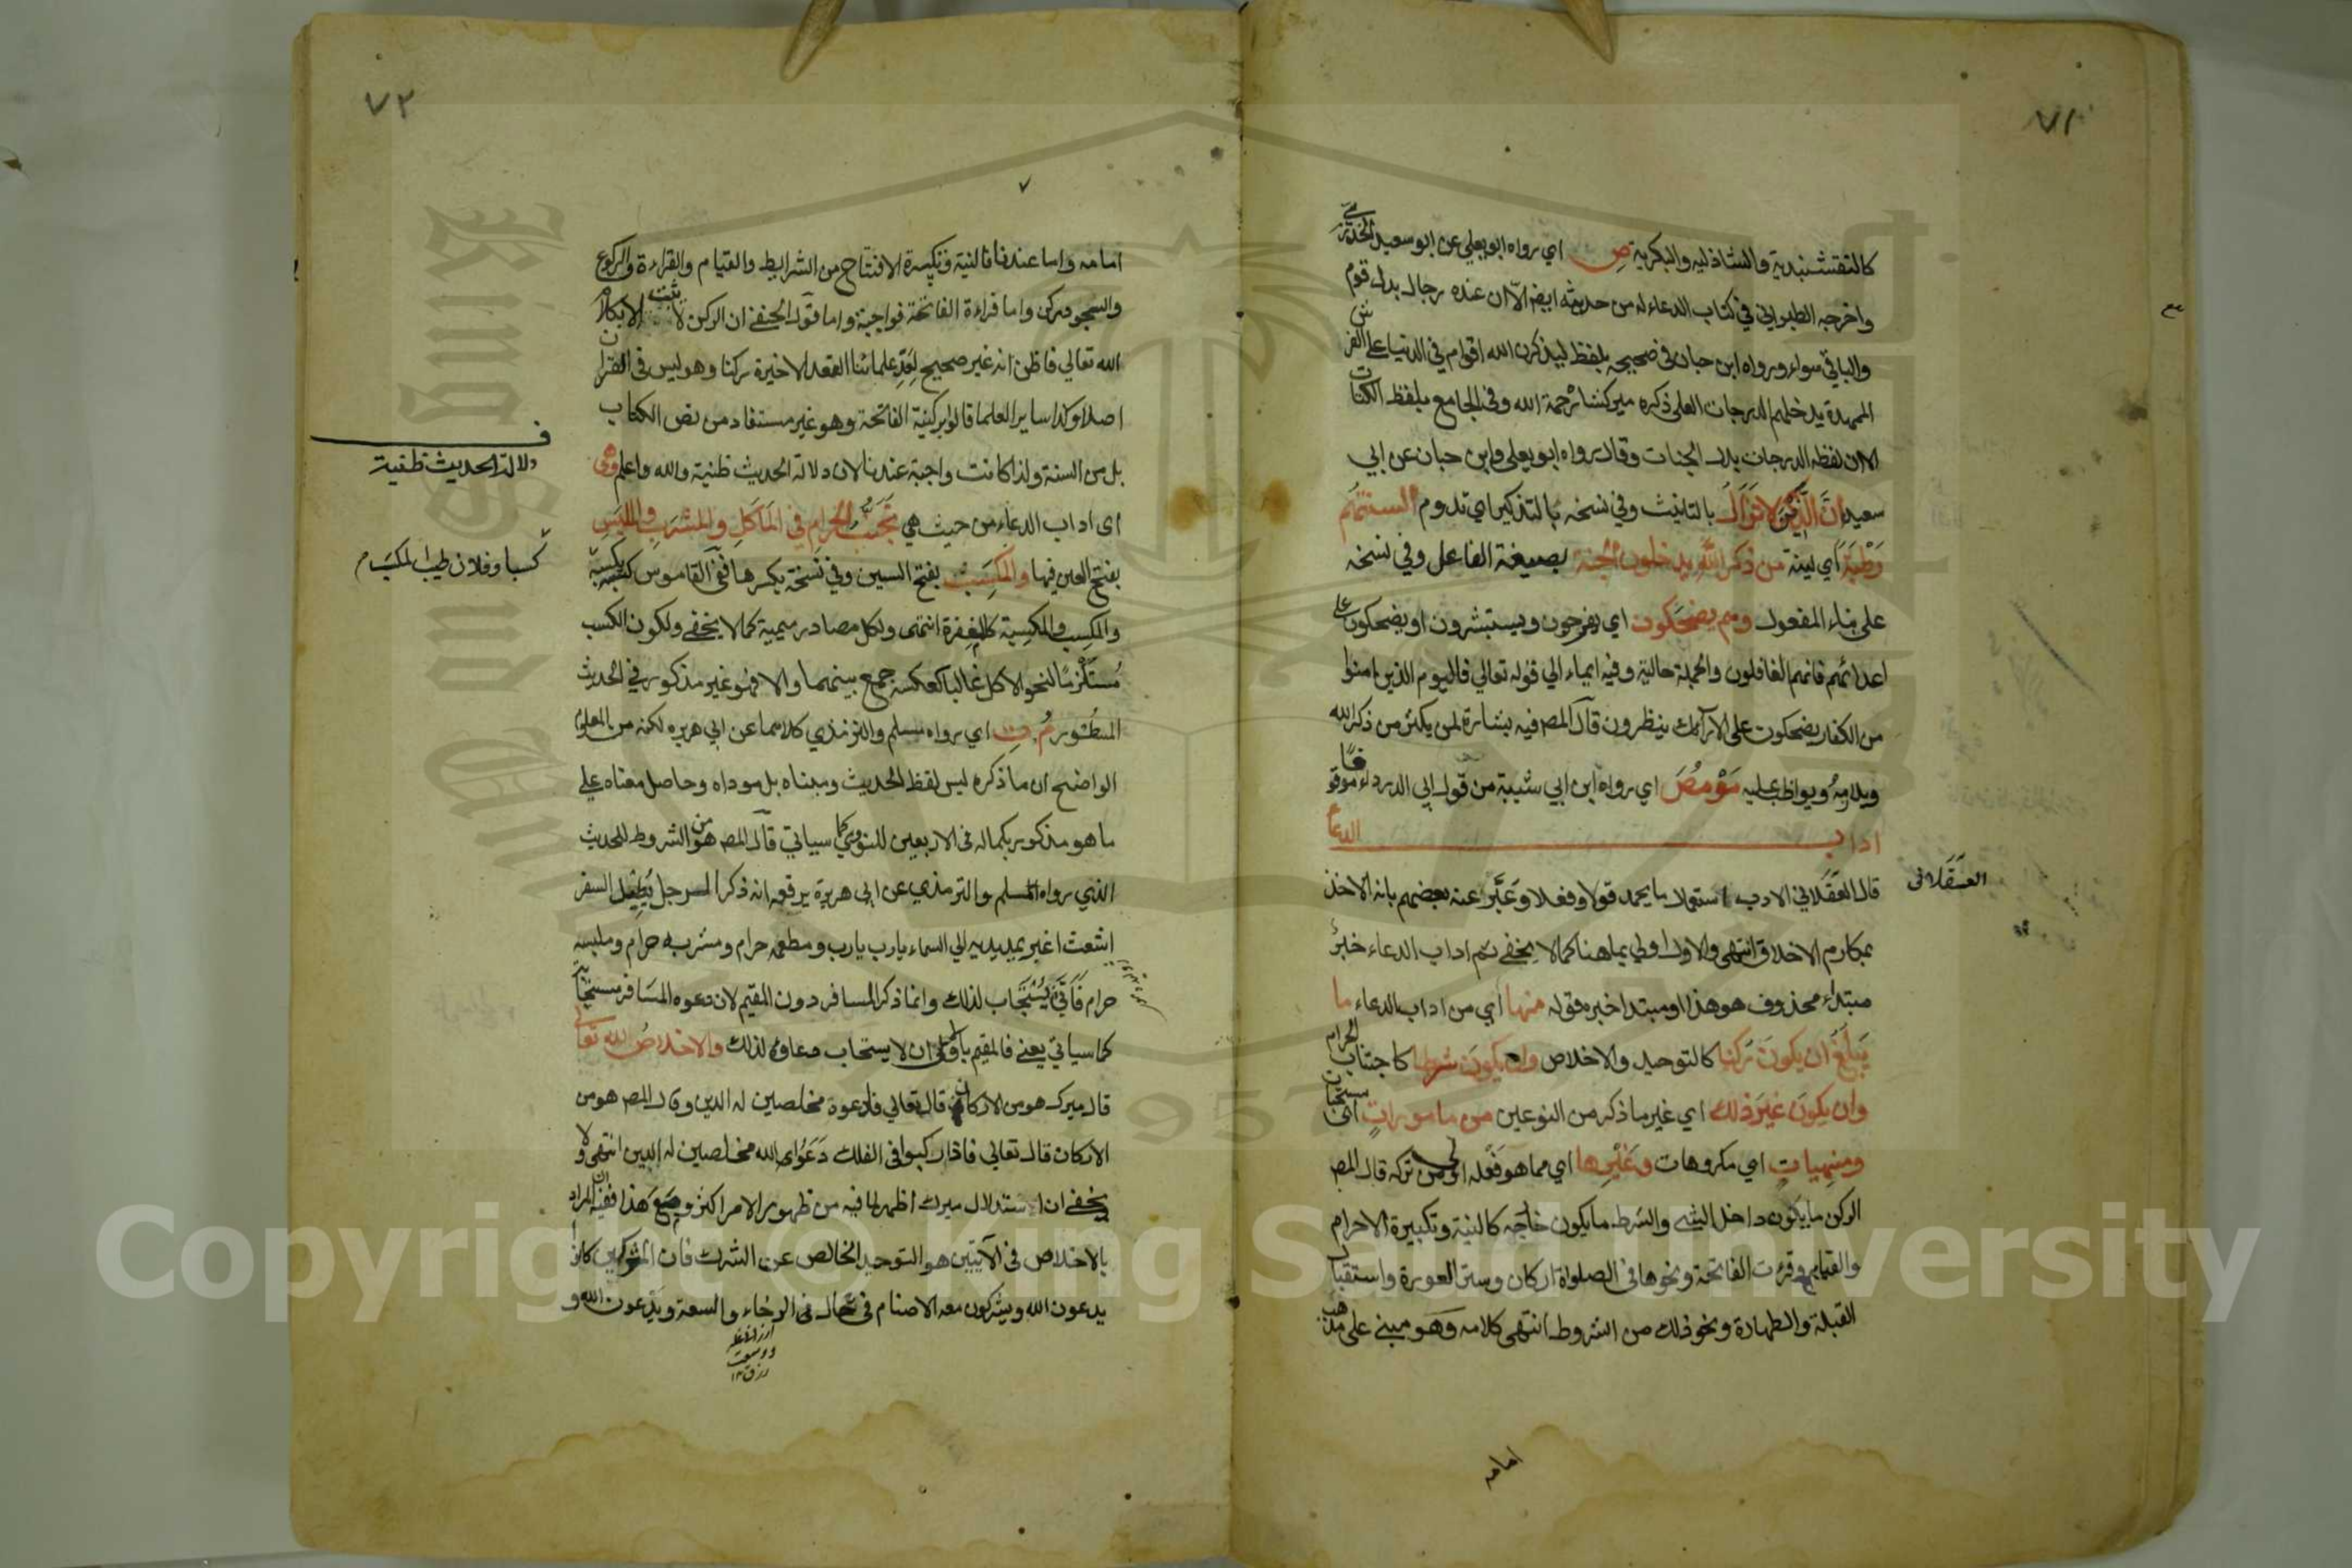 ٧١
كالنقشبندية والشاذليه والبكرية ص اي رواه ابو يعلي عن ابو سعيد الخدري
واخرجه الطبراني في كتاب الدعاء له من حديثه ايضا الا ان عنده رجال بدل قوم
والباقي سواء ورواه ابن حبان في صحيحه بلفظ ليذكرن الله اقوام في الدنيا علي الفرش
الممهدة يدخلهم الدرجات العلي ذكره ميركشاه رحمة الله وفي الجامع بلفظ الكتاب
الا ان لفظه الدرجات بدل الجنات وقال رواه ابو يعلي وابن حبان عن ابي
سعيد ان الذين لا تزال بالتانيث وفي نسخه بالتذكير اي تدوم السنتهم
رطبة اي لينة من ذكر الله يدخلون الجنة بصيغة الفاعل وفي نسخه
علي بناء المفعول وهم يضحكون اي يفرحون ويستبشرون او يضحكون علي
اعدائهم فانهم الغافلون والجملة حالية وفيه ايماء الي قوله تعالي فاليوم الذين امنوا
من الكفار يضحكون علي الارآئك ينظرون قال المصـ فيه بشارة لمن يكثر من ذكر الله
ويلازمه ويواظب عليه مَوْ مُصَ اي رواه ابن ابي شيبة من قول ابي الدرداء موقوفا
اداب الدعاء
قال العقلاني الادب استعمال ما يحمد قولا وفعلا وعَبَّر عنه بعضهم بانه الاخذ
العسقلانى
بمكارم الاخلاق انتهى والاول اولي بما هنا كما لا يخفي ثم اداب الدعاء خبرُ
مبتداء محذوف هو هذا او مبتدا خبره قوله منها اي من اداب الدعاء ما
يَبلُغُ ان يكونَ رُكنا كالتوحيد والاخلاص وان يكون شرطا كاجتناب الحرام
وان يكونَ غيرَ ذلك اي غير ما ذكر من النوعين من ماموراتٍ اى مستحبات
ومنهياتٍ اي مكروهات وغيرها اي مما هو فعله اولي من تركه قال المصـ
الركن ما يكون داخل الشيء والشرط ما يكون خارجه كالنية وتكبيرة الاحرام
والقيام وقراءت الفاتحة ونحوها في الصلواة اركان وستر العورة واستقبال
القبلة والطهارة ونحو ذلك من الشروط انتهى كلامه وهو مبني علي مذهب
امامه
٧٢
٧
امامه واما عندنا فالنية وتكبيرة الافتتاح من الشرايط والقيام والقراءة والركوع
والسجود ركن واما قراءة الفاتحة فواجبة واما قول الحنفي ان الركن لا يثبت الا بكلام
الله تعالي فاظن انه غير صحيح لعَدِّ علمائنا القعدة الاخيرة ركنا وهو ليس في القران
اصلا وكذا ساير العلما قالوا بركنية الفاتحة وهو غير مستفاد من نص الكتاب
بل من السنة ولذا كانت واجبة عندنا لان دلالة الحديث ظنية والله واعلم وهي
دلالة الحديث ظنية
اى اداب الدعاء من حيث هي تجنُّبُ الحرامِ في المأكلِ والمشربِ والملبسِ
بفتح العين فيها والمكسب بفتح السين وفي نسخة بكسرها ففي القاموس كسبه يكسبه
كسبا وفلان طيب المكسَب
والمكسِب والمكسِبة كالمغفرة انتهى ولكل مصادر ميمية كما لا يخفي ولكون الكسب
مُستلزمًا لنحو الاكل غالبا كعكسه جمع بينهما والا فهو غير مذكور في الحديث
المسطور مُ تِ اي رواه مسلم والترمذي كلاهما عن ابي هريره لكنه من المعلوم
الواضح ان ما ذكره ليس لفظ الحديث ومبناه بل موداه وحاصل معناه علي
ما هو مذكور بكماله في الاربعين للنووي كما سياتي قال المصـ هو من الشروط للحديث
الذي رواه المسلم والترمذي عن ابي هريرة يرفعه انه ذكر الرجل يُطِيل السفر
اشعث اغبر يمد يديه الي السماء يارب يارب ومطعمه حرام ومشربه حرام وملبسه
حرام فأنَّى يُستجاب لذلك وانما ذكر المسافر دون المقيم لان دعوه المسَافر مستجابة
كما سياتي يعني فالمقيم باولي ان لا يستجاب دعاوه لذلك والاخلاصُ لله تعالي
قال ميرك هو من الاركان قال تعالي فادعوه مخلصين له الدين وقال المصـ هو من
الاركان قال تعالي فاذا ركبوا في الفلك دعَوُا الله مخلصين له الدين انتهى ولا
يخفي ان استدلال ميرك اظهر لما فيه من ظهور الامر اكثر ومع هذا ففيه ان المراد
بالاخلاص في الآيتين هو التوحيد الخالص عن الشرك فان المشركين كانوا
يدعون الله ويشركون معه الاصنام في حال في الرخاء والسعة ويدعون الله و
Copyright © King Saud University
King Saud University
1957